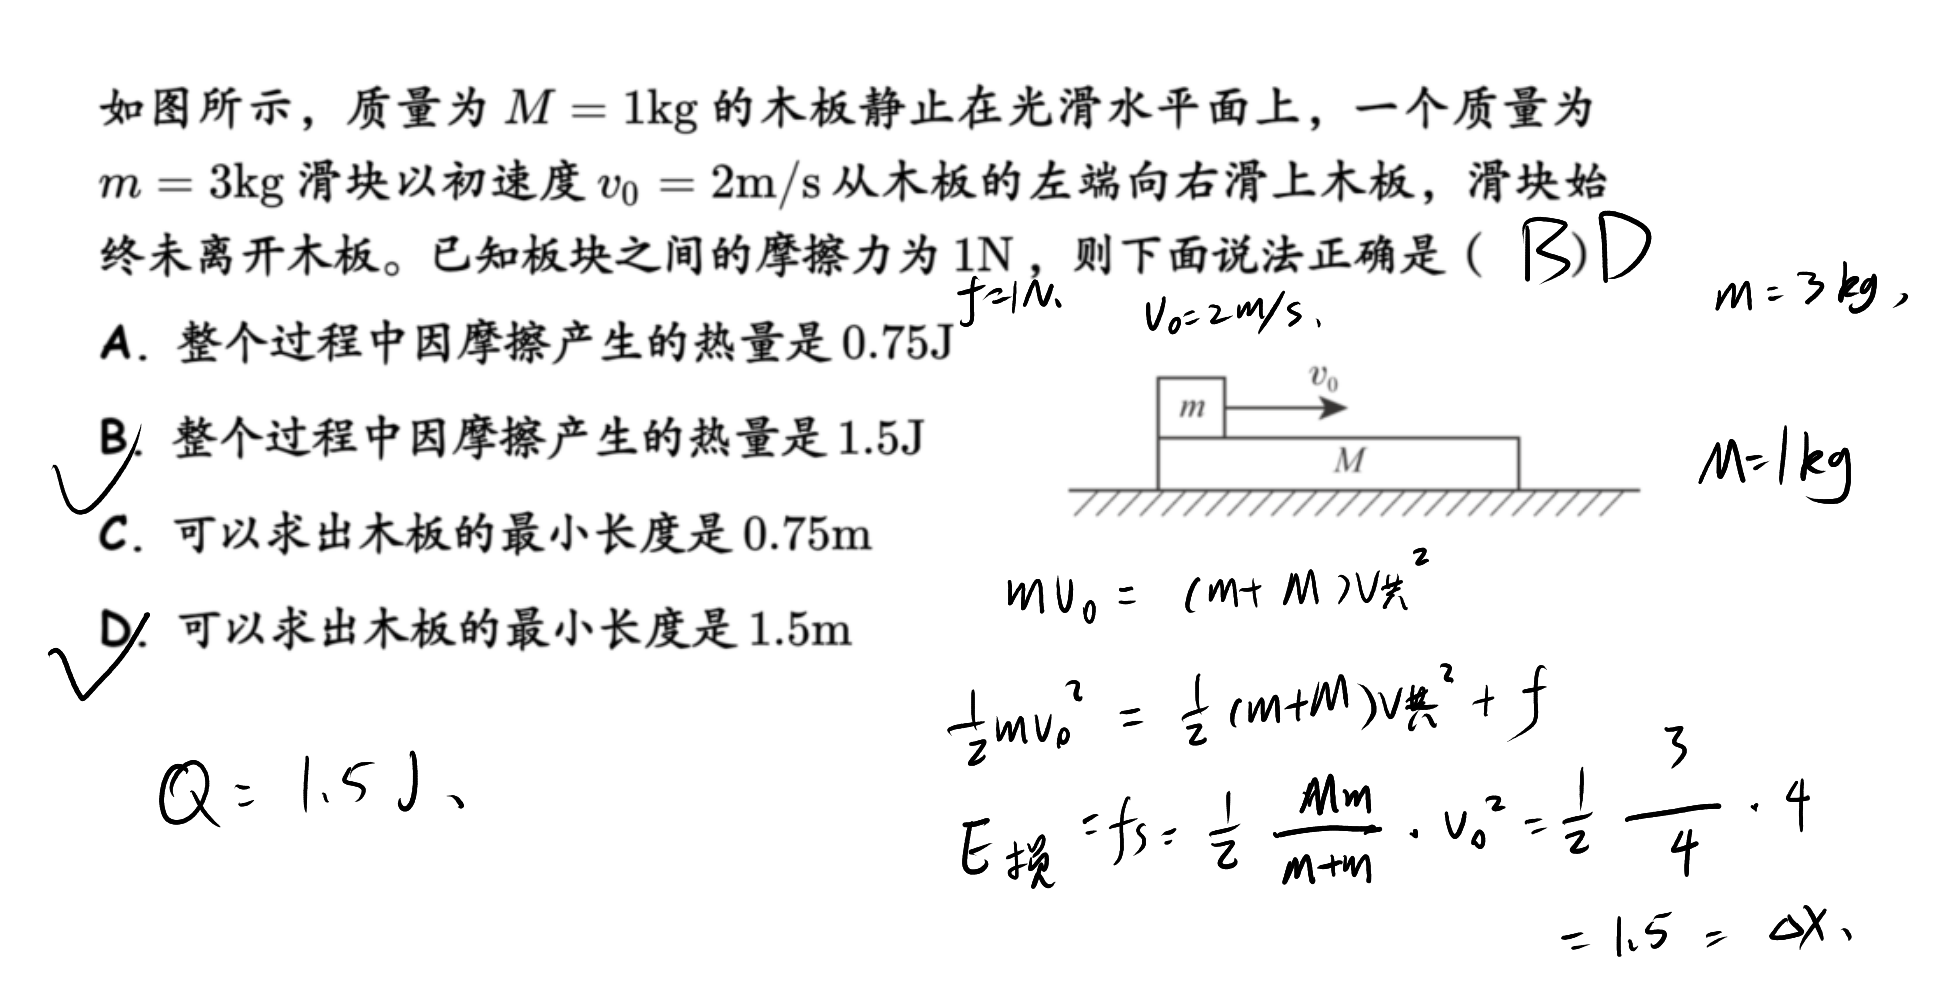 如图所示，质量为 M = 1kg 的木板静止在光滑水平面上，一个质量为
m = 3kg 滑块以初速度 v₀ = 2m/s 从木板的左端向右滑上木板，滑块始
终未离开木板。已知板块之间的摩擦力为 1N，则下面说法正确是（ B）D
f=1N、
v₀=2m/s、
m=3kg，
A. 整个过程中因摩擦产生的热量是 0.75J
v₀
m
B. 整个过程中因摩擦产生的热量是 1.5J
M
M=1kg
C. 可以求出木板的最小长度是 0.75m
D. 可以求出木板的最小长度是 1.5m
mv₀ = (m+M)v共²
½mv₀² = ½(m+M)v共² + f
E损 = fs = ½ Mm/(m+m) · v₀² = ½ 3/4 · 4
= 1.5 = Δx、
Q = 1.5J、